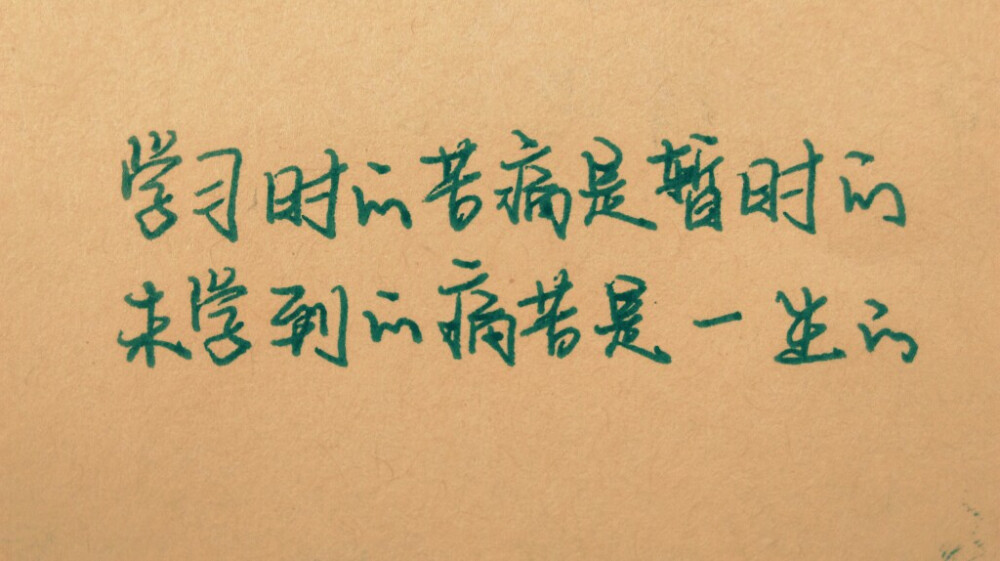 学习时的苦痛是暂时的
未学到的痛苦是一生的